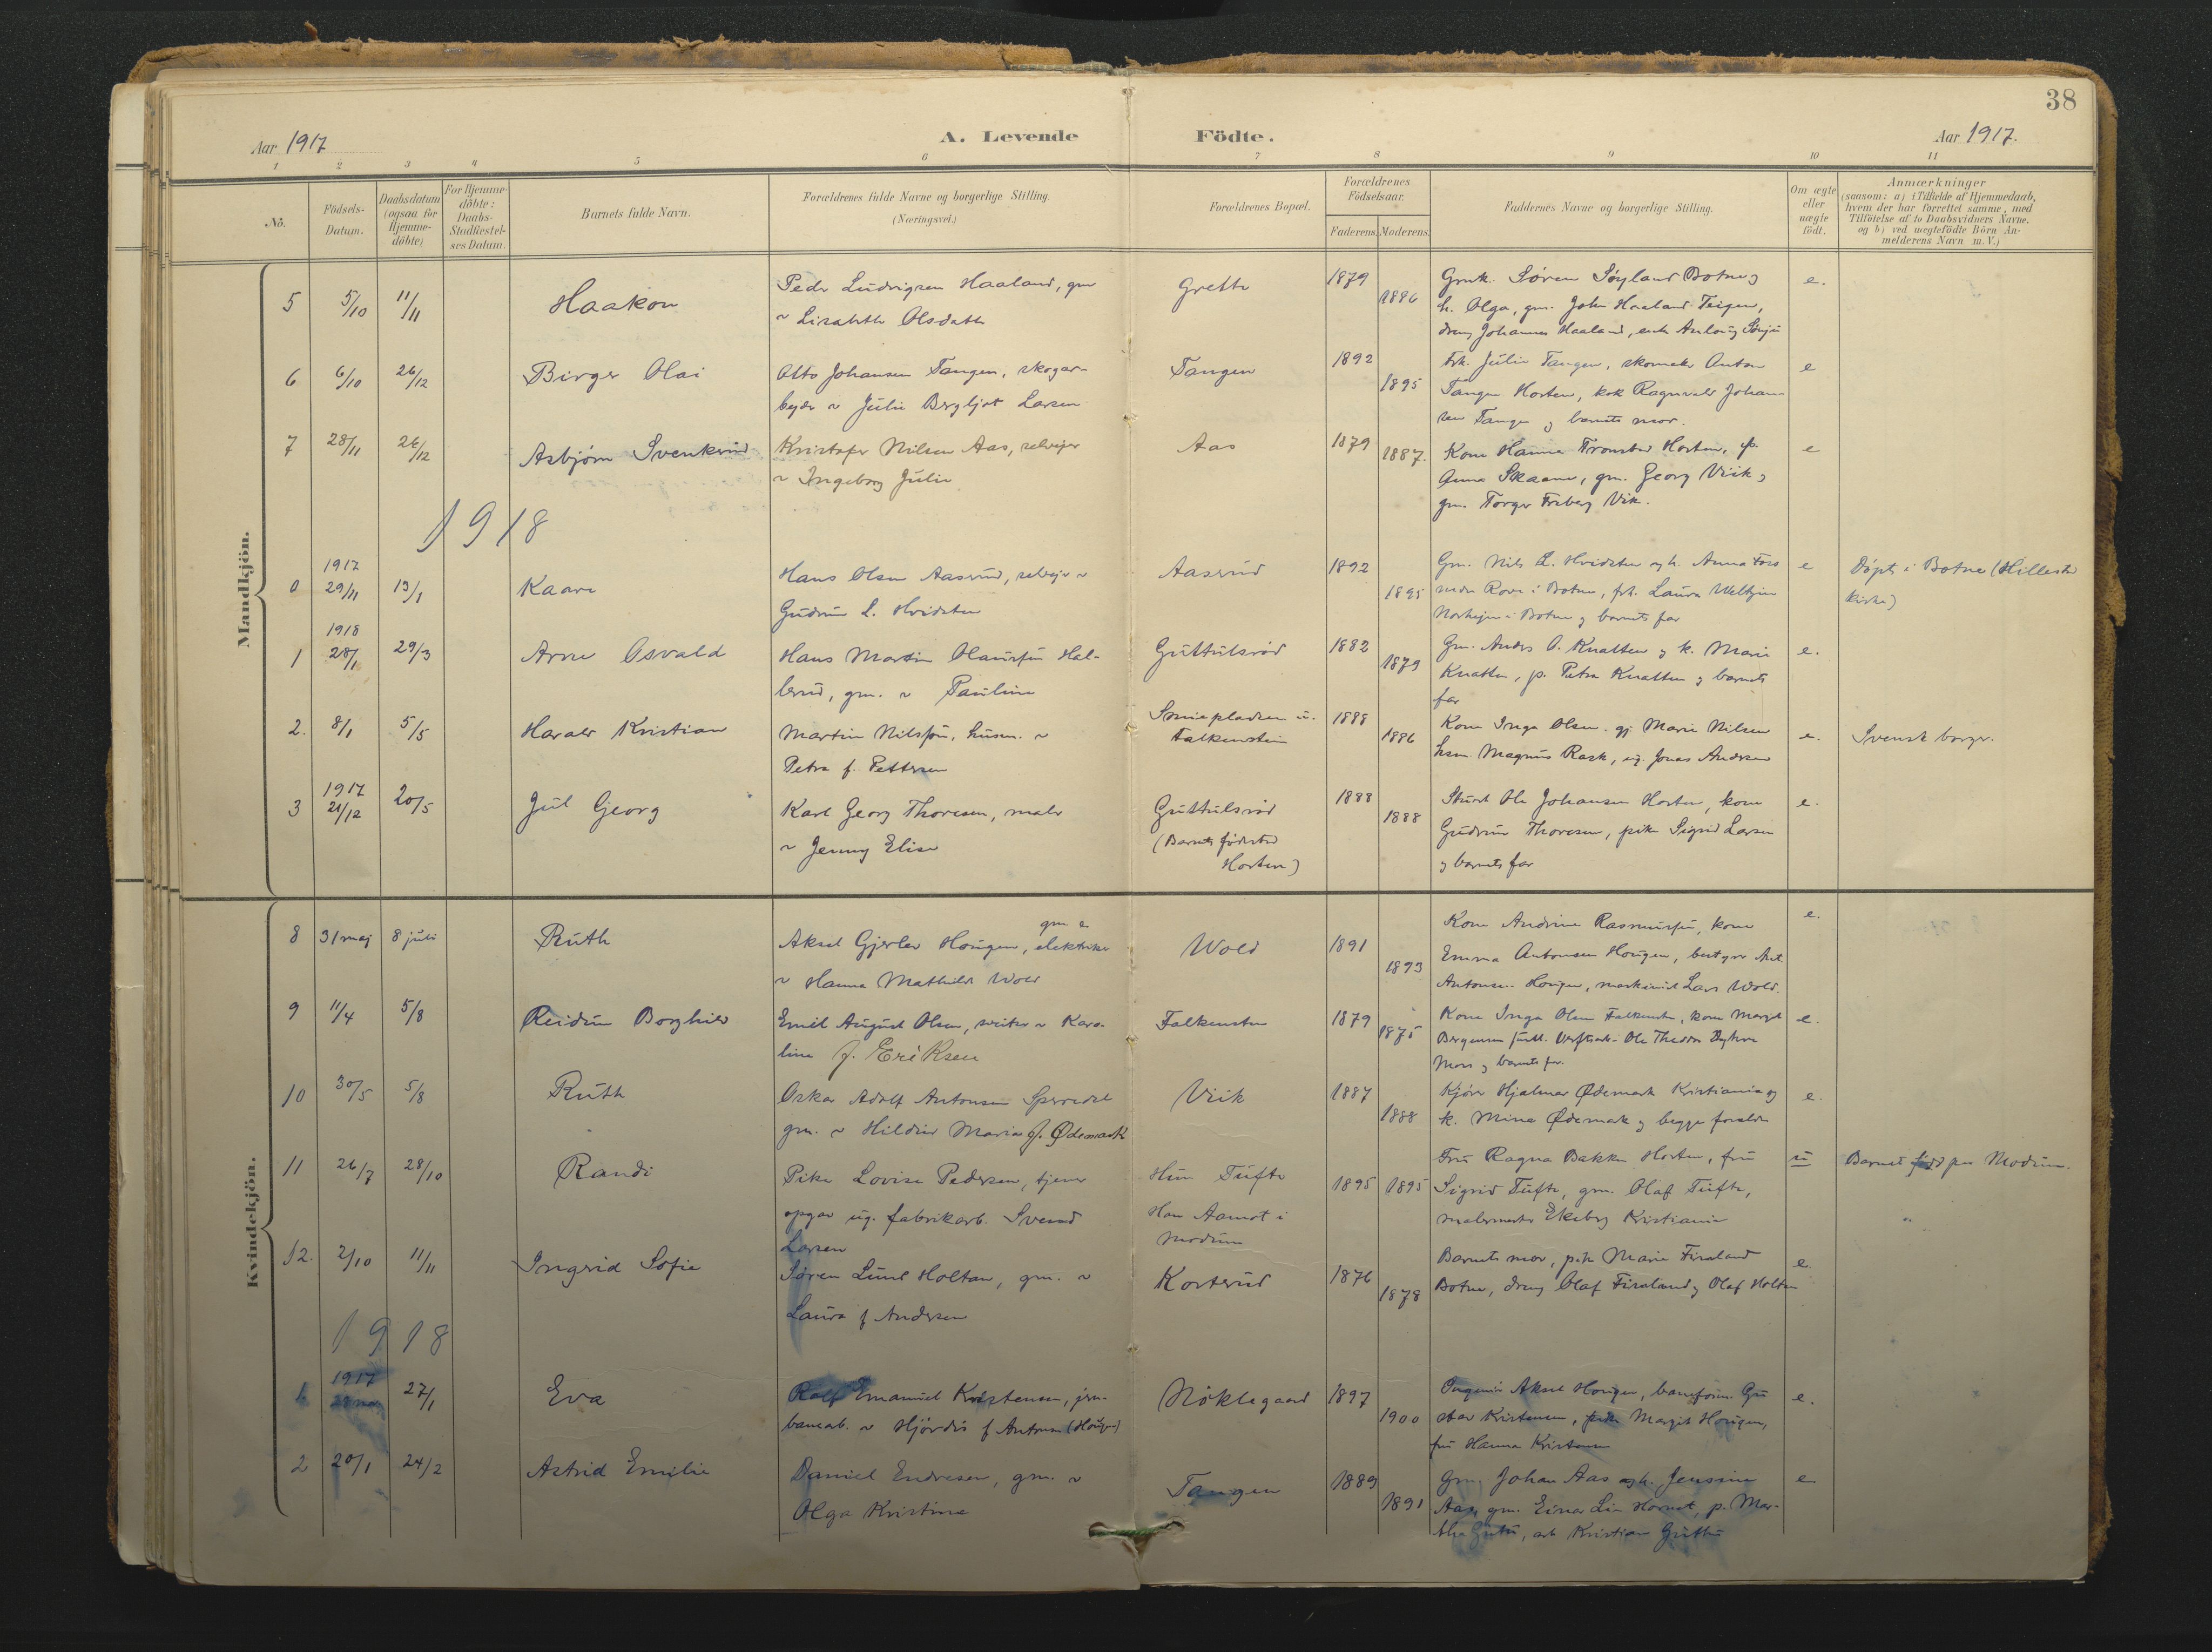 38
Aar 1917 A. Levende Födte. Aar 1917.
1 2 3 4 5 6 7 8 9 10 11
No.
Födsels-
Datum.
Daabsdatum
(ogsaa for
Hjemme-
döbte)
For Hjemme-
döbte:
Daabs-
Stadfæstel-
ses Datum.
Barnets fulde Navn.
Forældrenes fulde Navne og borgerlige Stilling.
(Næringsvei.)
Forældrenes Bopæl.
Forældrenes
Födselsaar.
Faderens. Moderens.
Faddernes Navne og borgerlige Stilling.
Om ægte
eller
uægte
födt.
Anmærkninger
(saasom: a) i Tilfælde af Hjemmedaab,
hvem der har forrettet samme, med
Tilföielse af to Daabsvidners Navne.
og b) ved uægtefödte Börn An-
melderens Navn m. V.)
Mandkjön.
5 5/10 11/11 Haakon
Peder Ludvigsen Haaland, gm
Grette 1879 1886
Gmk. Søren Søyland Botne og
h. Olga, gm. John Haaland Teigen,
dreng Johannes Haaland, enke
e.
6 6/10 26/12 Birger Olai
Otto Johansen Tangen, skogar-
beider & Julie Bergljot Larsen
Tangen 1892 1895
Frk. Julie Tangen, skomaker Anton
Tangen Horten, kok Ragnvald Johan-
sen Tangen og barnets mor.
e
7 28/11 26/12 Asbjørn
Kristofer Nilsen Aas, selveier
& Ingeborg Julie
Aas 1879 1887.
Kone Hanna Horten, p.
Anna Skaane, gm. Georg Viik og
gm. Torger Viik.
e
1918
0 1917 29/11 13/1 Kaare
Hans Olsen Aasrud, selveier &
Gudrun L. Hvidsten
Aasrud 1892 1895
Gm. Nils L. Hvidsten og h. Anna Foss
nedre Rove i Botne, frk. Laura
i Botne og barnets far
e
Døpt i Botne (Hillestad
kirke)
1 1918 28/1 29/3 Arne Osvald
Hans Martin Olausen Hal-
lerud, gm. & Pauline
Guttulsrød 1882 1879
Gm. Anders O. Knatten og k. Marie
Knatten, p. Petra Knatten og barnets
far
e.
2. 8/1 5/5 Harald Kristian
Martin Nilsson, husm. &
Petra f. Pettersen
Smiepladsen u.
Falkensten
1888 1886
Kone Inga Olsen. gj. Marie Nilsen
husm. Magnus Rask, ug. Jonas Andersen
e.
Svensk borger.
3 1917 21/12 20/5 Jul Gjeorg
Karl Georg Thoresen, maler
& Jenny Elise
Guttulsrød
(Barnets fødested
Horten)
1888 1888
Ole Johansen Horten, kone
Gudrun Thoresen, pike Sigrid Larsen
og barnets far
e.
Kvindekjön.
8 31 maj 8 juli Ruth
gm &
Aksel Gjerløv Hougen, elektriker
& Hanna Mathilde Wold
Wold 1891 1893
Kone Andrine Rasmussen, kone
Emma Antonsen Hougen, bestyrer
Antonsen Hougen, maskinist Lars Wold.
e.
9 11/4 5/8 Reidun Borghild
Emil August Olsen, sveiser & Karo-
line f. Eriksen
Falkensten 1879 1875
Kone Inga Olsen Falkensten, kone Margit
Bergersen Ole Theodor
Moss og barnets far.
e.
10 30/5 5/8 Ruth
Oskar Adolf Antonsen
gm. & Hildur Maria f. Ødemark
Viik 1887 1888
Kjører Hjalmar Ødemark Kristiania og
k. Mina Ødemark og begge foreldre
e.
11 26/7 28/10 Randi
Pike Lovise Pedersen, tjener
opgav ug. fabrikarb. Svend
Larsen
Hun Tufte
Han Aamot i
Modum
1895 1895
Fru Ragna Bakken Horten, fru
Sigrid Tufte, gm. Olaf Tufte,
malermester Ekeberg Kristiania
u
Barnet født paa Modum.
12. 2/10 11/11 Ingrid Sofie
Søren Lund Holtan, gm. &
Laura f Andersen
Korterud 1876 1878
Barnets mor, pike Marie Firaland
Botne, dreng Olaf Firaland og Olaf Holtan
e.
1918
1. 1917 27/1 Eva
Rolf Emanuel Kristensen, jern-
banearb. & Hjördis f Antonsen (Hougen)
Nöklegaard 1897 1900
Aksel Hougen, baneform. Gu
stav Kristensen, pike Margit Hougen,
fru Hanna Kristensen
e.
2 20/1 24/2 Astrid Emilie
Daniel Endresen, gm. &
Olga Kristine
Tangen 1889 1891
Gm. Johan Aas og h. Jensine
Aas, gm. Einar Lie p. Mar-
tha arb Kristian
e